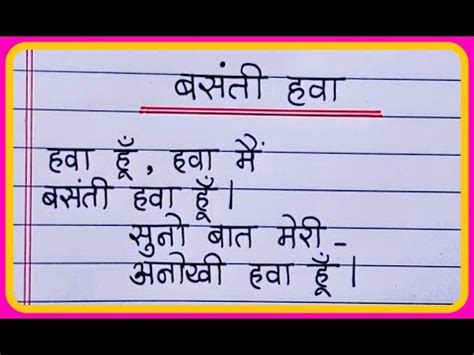 बसंती हवा
हवा हूँ, हवा मैं
बसंती हवा हूँ।
सुनो बात मेरी -
अनोखी हवा हूँ।